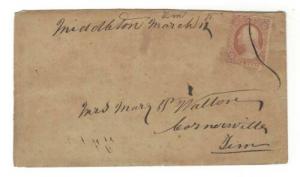 Middleton March 12
Ten
Mrs Mary P Walton
Cornersville
Ten